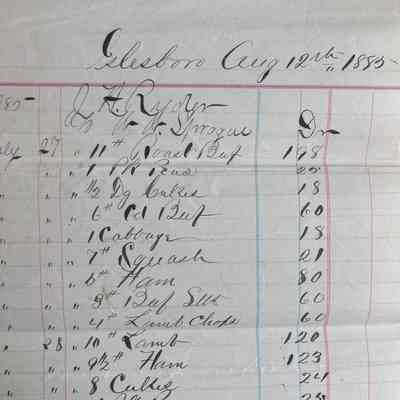 Islesboro Aug 12th 1885
1885 J. H. Ryder
To W. H. Sprague Dr
July 27 " 11# Roast Beef 198
" " 1 Pk Peas 25
" " 1/2 Dz Cukes 18
" " 6# Cd Beef 60
" " 1 Cabbage 18
" " 7# Squash 21
" " 5# Ham 80
" " 3# Beef Stk 60
" " 4# Lamb Chops 60
" 28 " 10# Lamb 120
" " 9 1/2# Ham 123
" " 8 Cukes 24